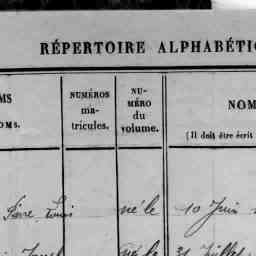 RÉPERTOIRE ALPHABÉTI
MS
OMS.
NUMÉROS
ma-
tricules.
NU-
MÉRO
du
volume.
NOM
(Il doit être écrit
Louis né le 10 Juin
né le 31 Juillet